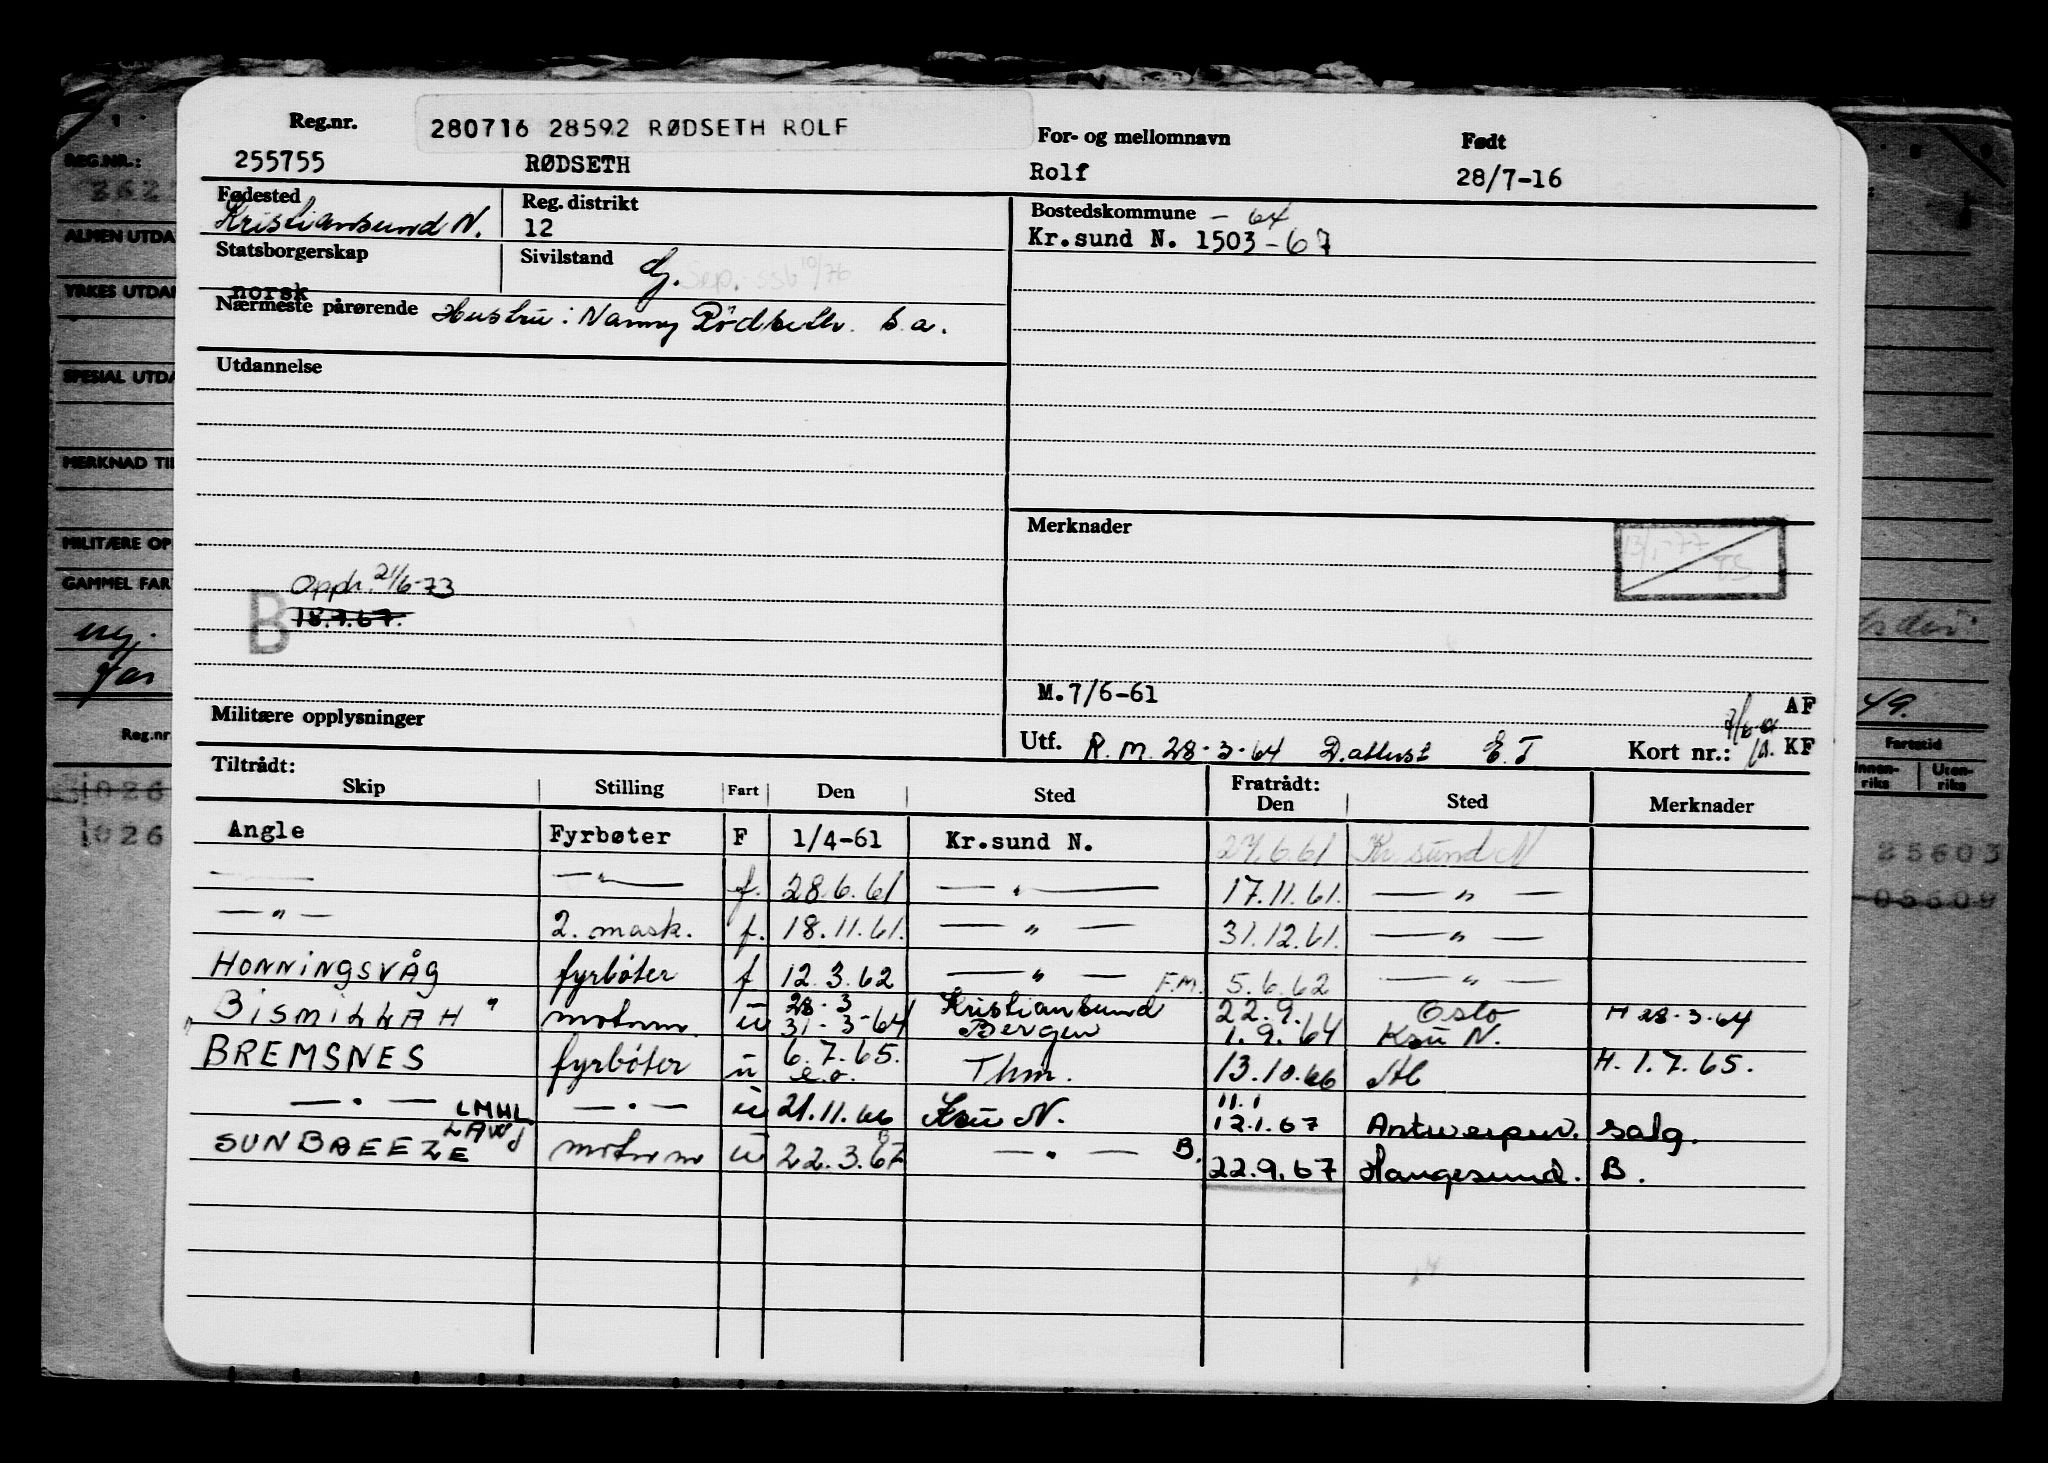 Reg.nr.
280716 28592 RØDSETH ROLF
For- og mellomnavn
Født
255755
RØDSETH
Rolf
28/7-16
Fødested
Kristiansund N.
Reg. distrikt
12
Bostedskommune - 64
Kr.sund N. 1503 - 67
Statsborgerskap
norsk
Sivilstand
g. Sep. ssb 10/76
Nærmeste pårørende Hustru: Nanny Rødseth. s.a.
Utdannelse
Merknader
13/1-77
Opph. 21/6-73
B 18.7.67.
M.7/6-61
AF
Militære opplysninger
Utf. R.M. 28-3-64 D.attest E.T
Kort nr.: KF
Tiltrådt:
Skip Stilling Fart Den Sted Fratrådt: Den Sted Merknader
Angle Fyrbøter F 1/4-61 Kr.sund N. 27.6.61 Kr sund N
— — " — f. 28.6.61 — " — 17.11.61. — " —
— " — 2. mask. f. 18.11.61. — " — 31.12.61. — " —
HONNINGSVÅG fyrbøter f 12.3.62 — " — F.M. 5.6.62 — " —
BISMILLAH " motorm. u 28-3 31-3-64 Kristiansund Bergen 22.9. 1.9.64 Oslo Ksu N. H 28-3-64
BREMSNES fyrbøter u 6.7.65. e.o. Thm. 13.10.66 H. 1.7.65.
— " — — " — u 21.11.66 Ksu N. 11.1 12.1.67 Antwerpen. salg.
SUNBREEZE LMHL motorm u 22.3.67 — " — B. 22.9.67 Haugesund. B.
REG.NR.:
ALMEN UTDA
YRKES UTDAN
SPESIAL UTDA
MERKNAD TIL
MILITÆRE OP
GAMMEL FAR
Reg.nr
026
026
49.
Fartstid
Innen-riks
Uten-riks
25603
05609